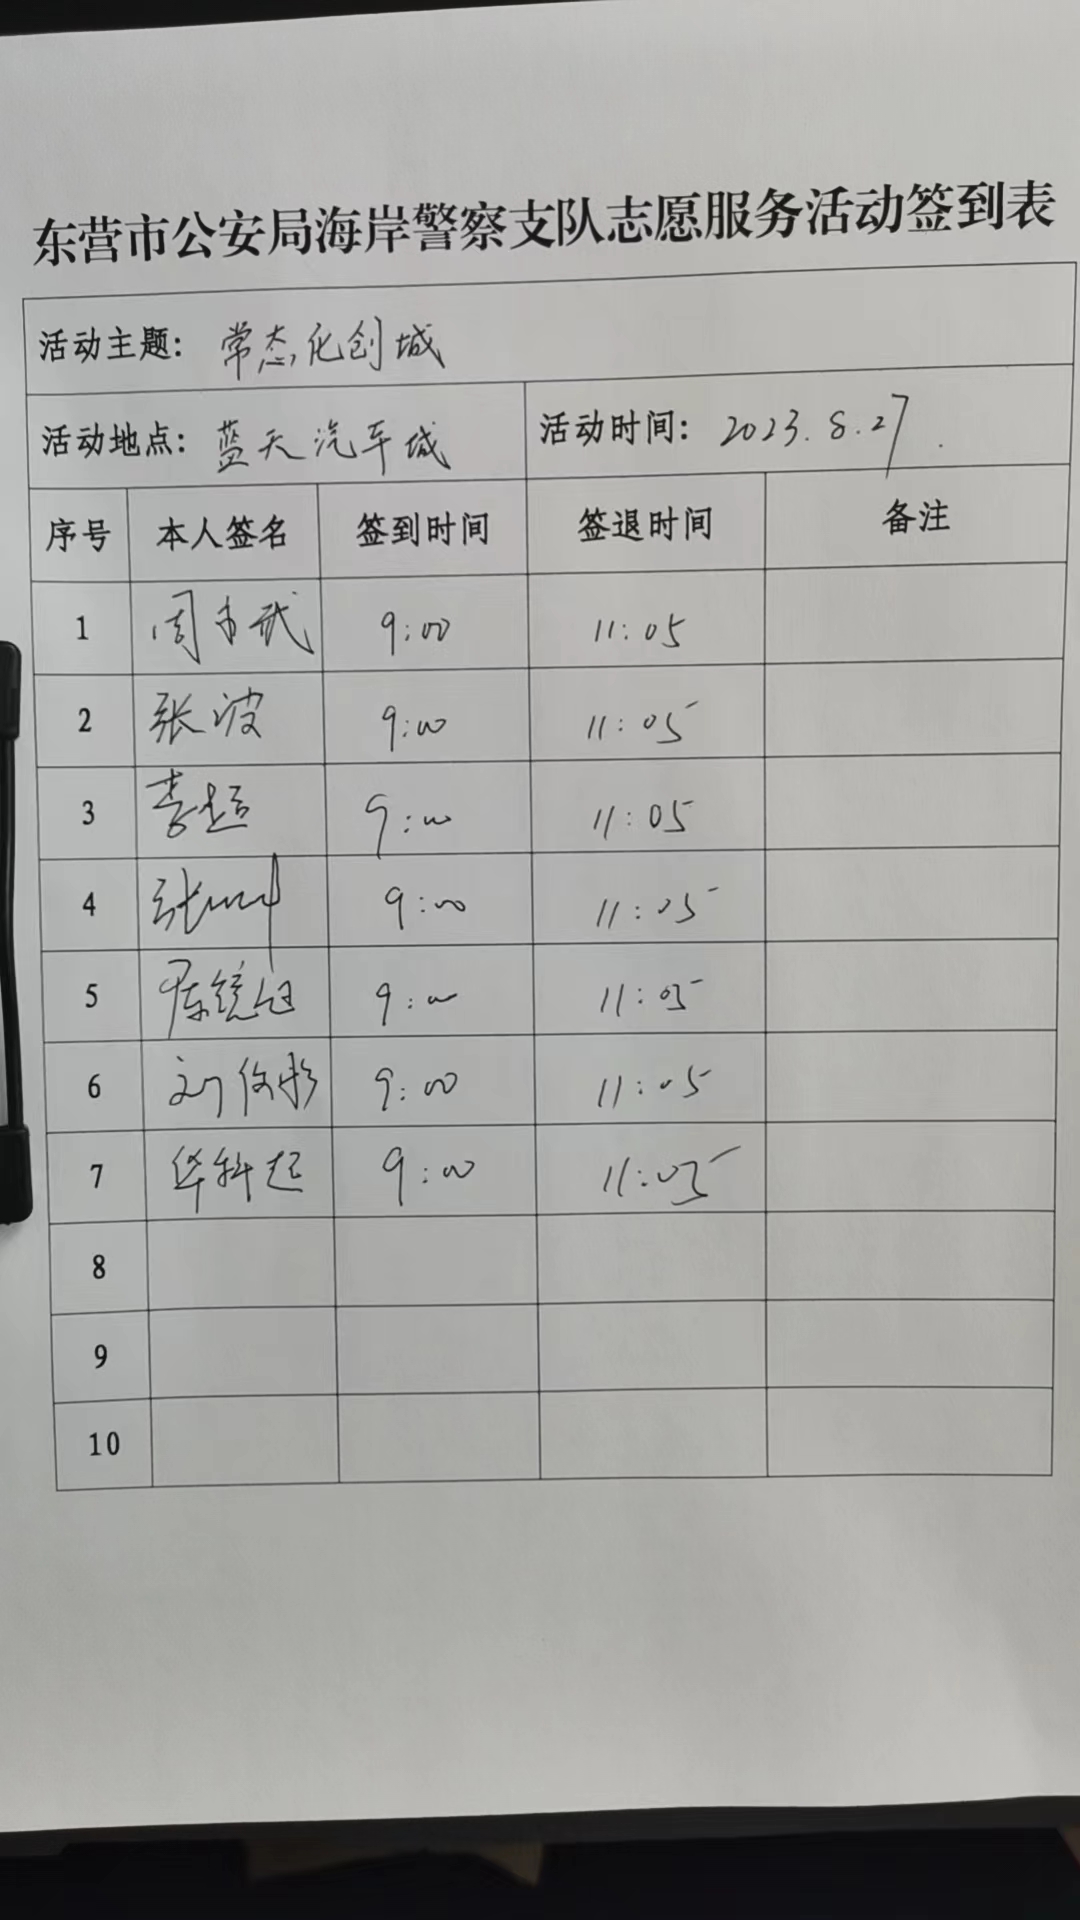 东营市公安局海岸警察支队志愿服务活动签到表
活动主题: 常态化创城
活动地点: 蓝天汽车城 活动时间: 2023.8.27.
序号 本人签名 签到时间 签退时间 备注
1 周 武 9:00 11:05
2 张波 9:00 11:05
3 李超 9:00 11:05
4 张 9:00 11:05
5 9:00 11:05
6 刘俊彤 9:00 11:05
7 华科起 9:00 11:05
8
9
10